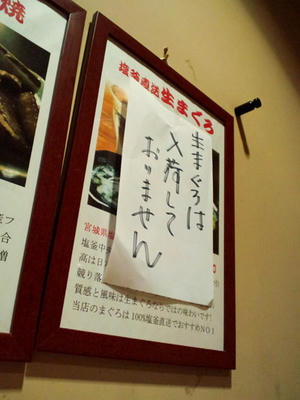 焼
塩釜直送 生まぐろ
生まぐろは
入荷して
おりません
宮城県
塩釜中央
高は日
競り落
質感と風味は生まぐろならではの味わいです!
当店のまぐろは100%塩釜直送でおすすめNO1